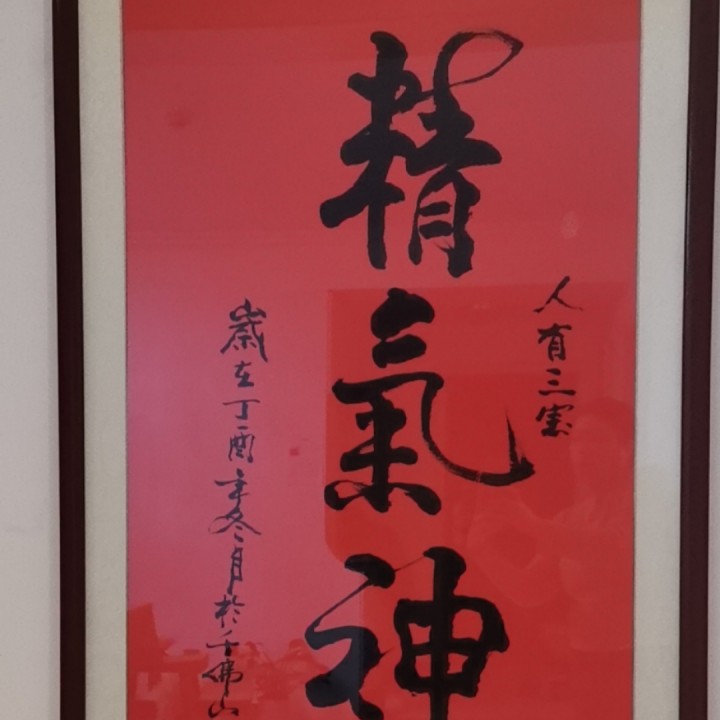 人有三宝
精氣神
歲在丁酉年冬月於千佛山